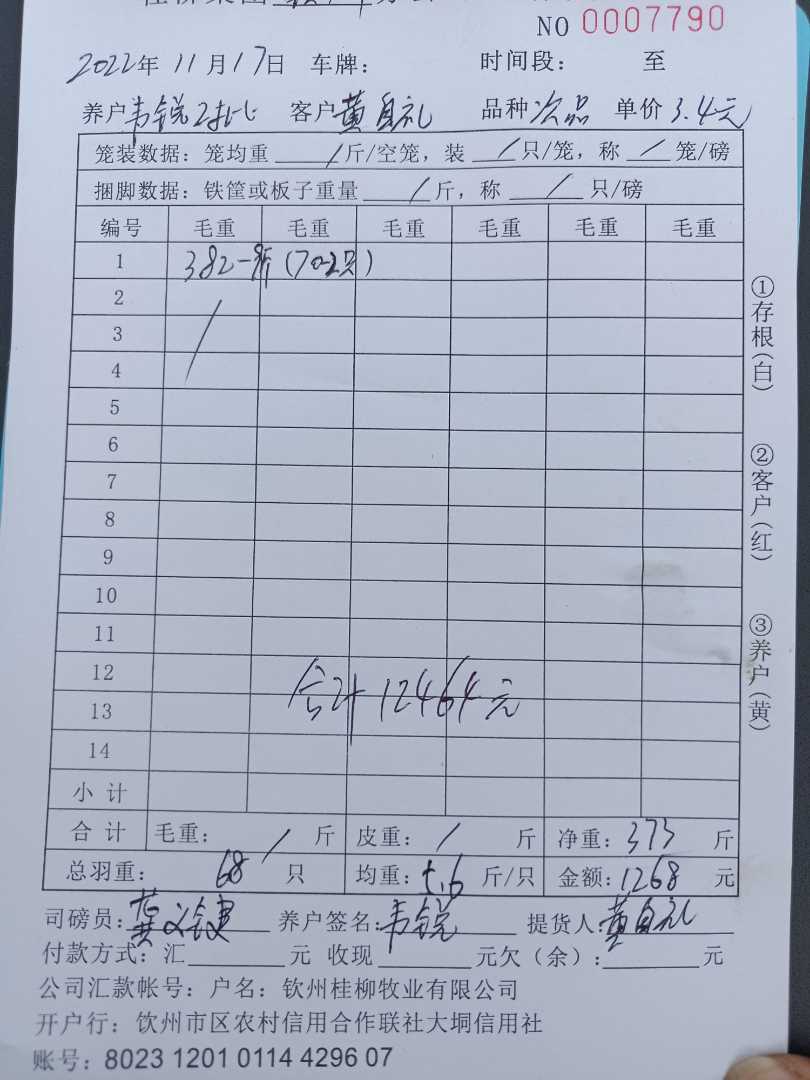 NO 0007790
2022年 11月17日 车牌: 时间段: 至
养户韦锐 客户黄自礼 品种次品 单价3.4元
笼装数据: 笼均重 / 斤/空笼, 装 / 只/笼, 称 / 笼/磅
捆脚数据: 铁筐或板子重量 / 斤, 称 / 只/磅
编号 毛重 毛重 毛重 毛重 毛重 毛重
1 382 (70-2只)
2
3
4
5
6
7
8
9
10
11
12
合计 12464元
13
14
小 计
合 计 毛重: / 斤 皮重: / 斤 净重: 373 斤
总羽重: 68 只 均重: 5.6 斤/只 金额: 1268 元
司磅员: 养户签名: 韦锐 提货人: 黄自礼
付款方式: 汇 元 收现 元欠（余）: 元
公司汇款帐号: 户名: 钦州桂柳牧业有限公司
开户行: 钦州市区农村信用合作联社大垌信用社
账号: 8023 1201 0114 4296 07
①存根(白)
②客户(红)
③养户(黄)